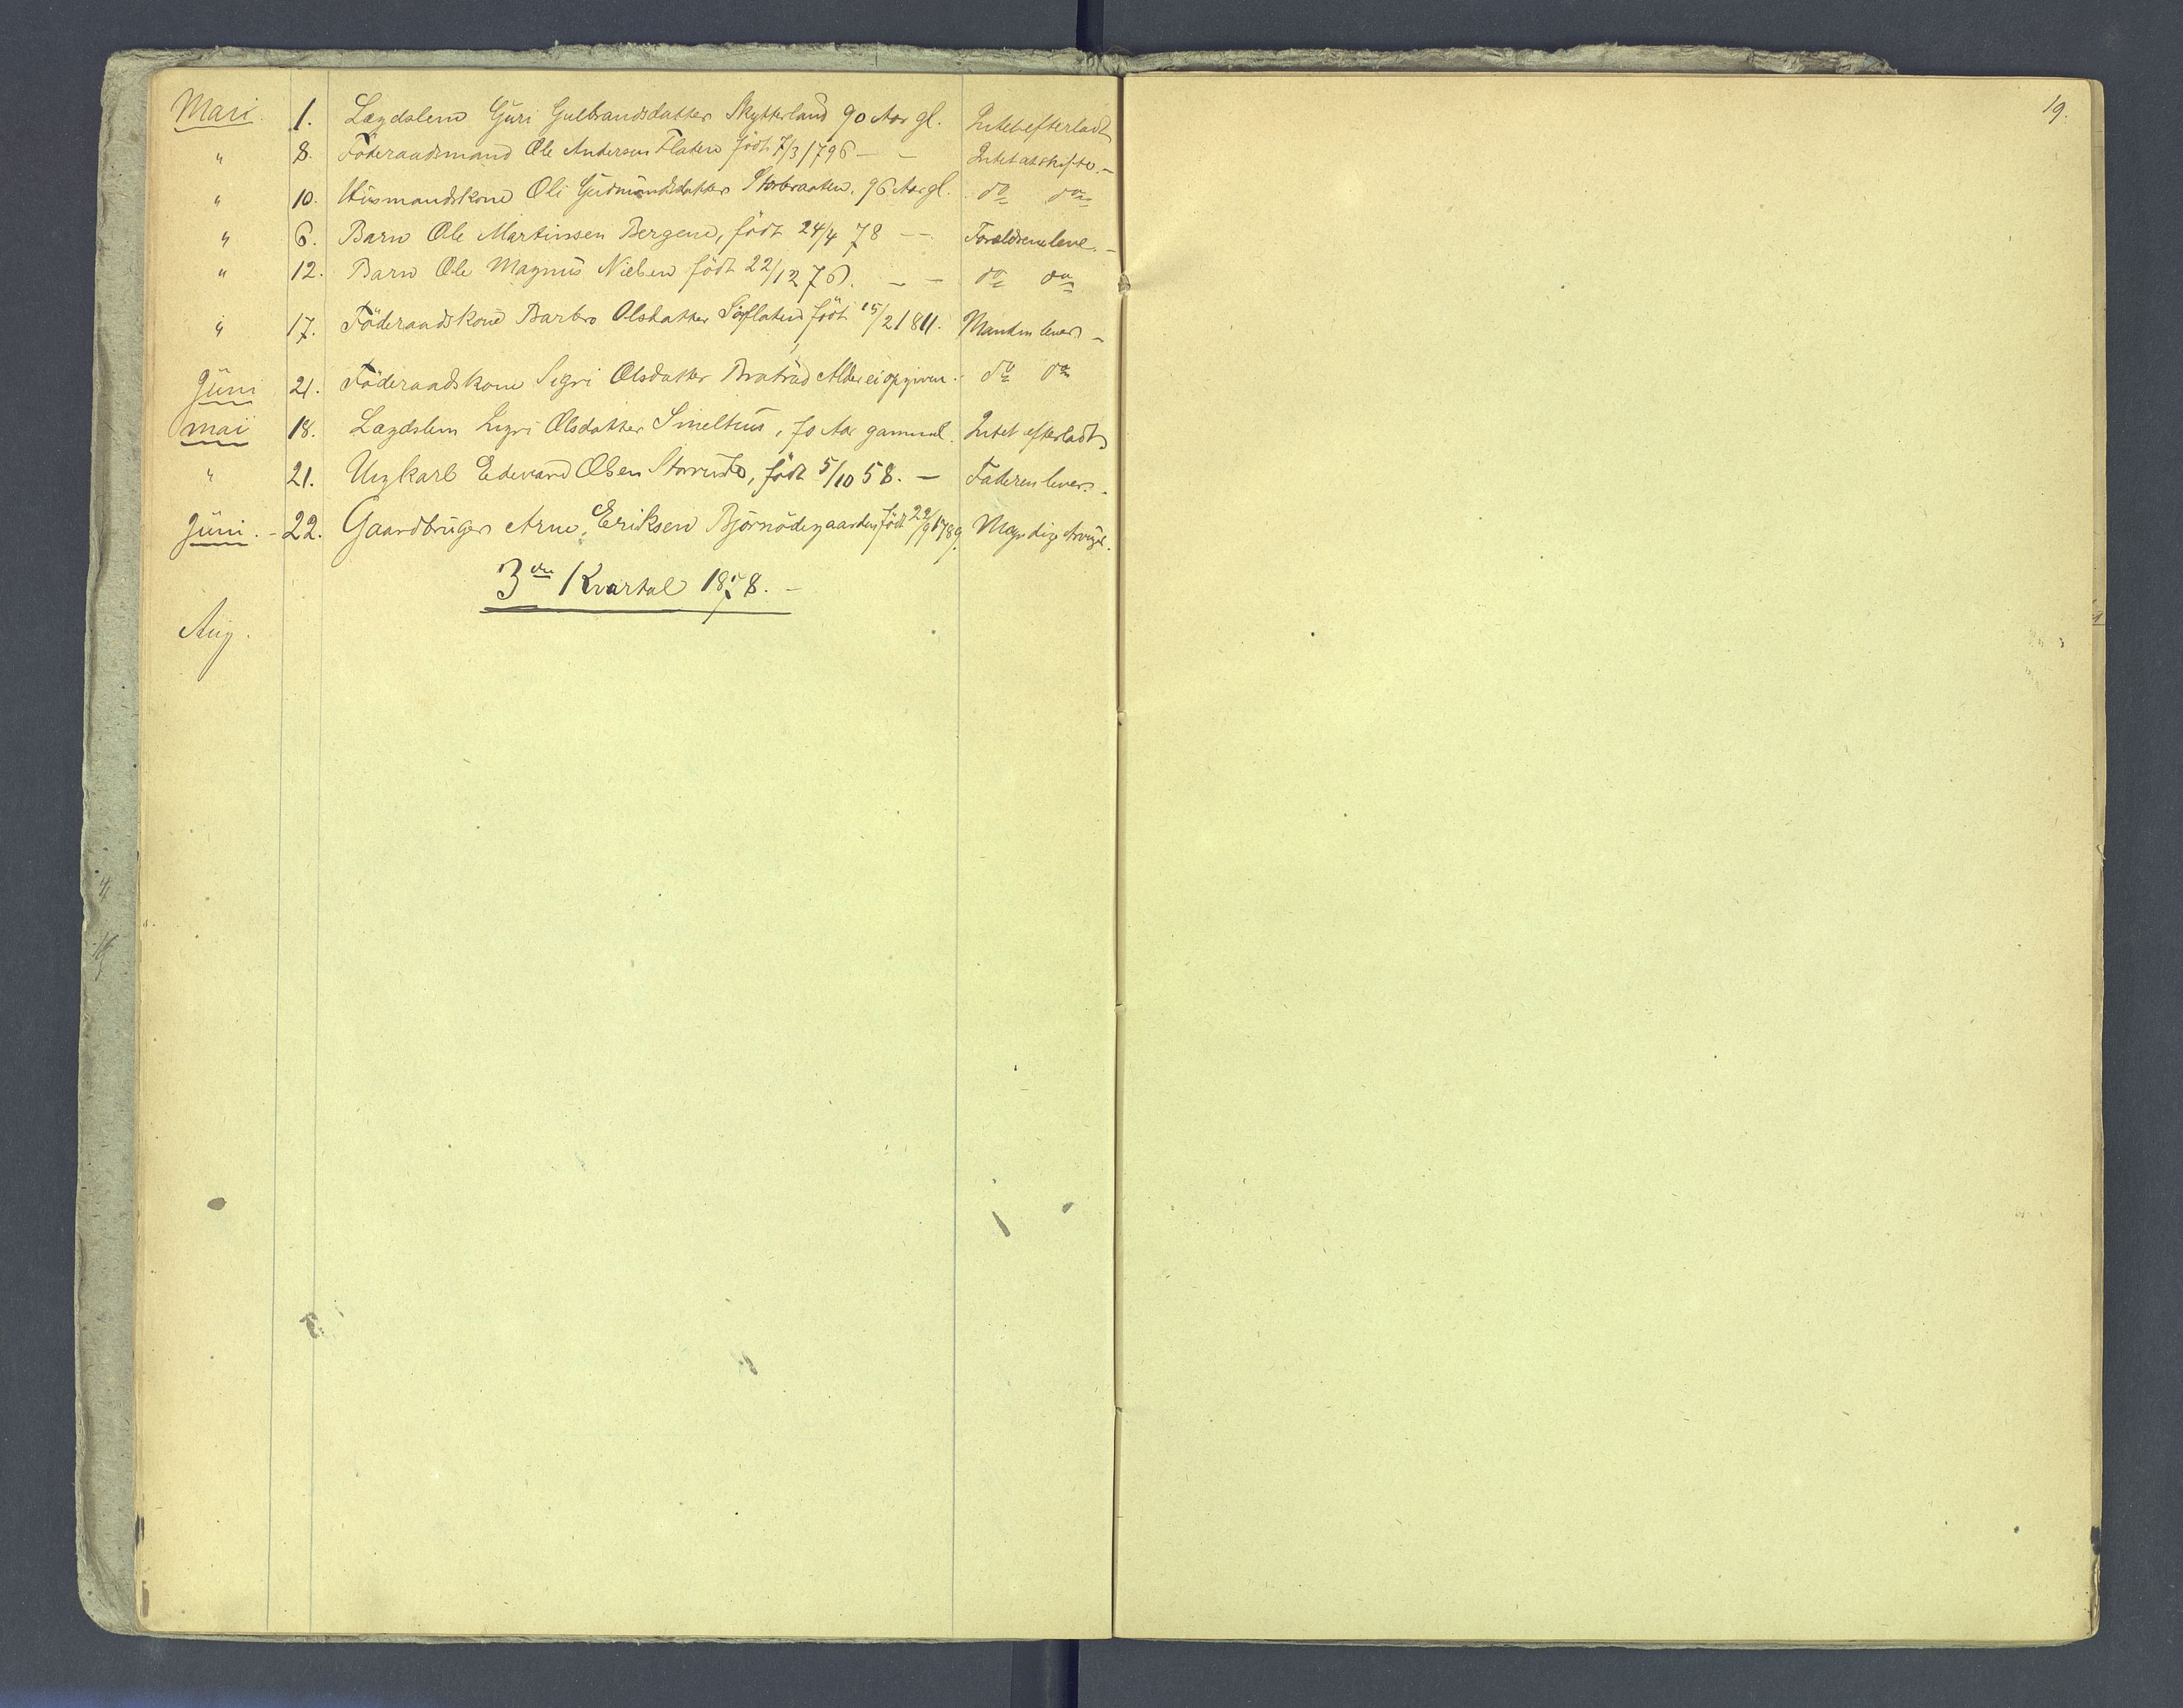 19.
Mari 1. Lægdslem Guri Gulbrandsdatter Skytterland 90 Aar gl. Intet efterladt
" 8. Föderaadsmand Ole Andersen Flaten födt 7/3 1796 — — Intet at skifte. —
" 10. Husmandskone Oli Gudmundsdatter Storbraaten. 96 Aar gl. do do
" 6. Barn Ole Martinsen Bergene, födt 24/4 78 — — Forældrene leve. —
" 12. Barn Ole Magnus Nielsen födt 22/12 76. — — do do
" 17. Föderaadskone Barbro Olsdatter Söflaten födt 15/2 1811. Manden lever —
Juni 21. Föderaadskone Sigri Olsdatter Bratrud Alder ei opgiven. do do
Mai 18. Lægdslem Sigri Olsdatter 70 Aar gammel. Intet efterladt
" 21. Ungkarl Edevard Olsen födt 5/10 58. — Faderen lever. -
Juni. - 22. Gaardbruger Arne Eriksen Björnödegaarden födt 22/9 1789. Myndige Arvinger.
3die Kvartal 1878. —
Aug.